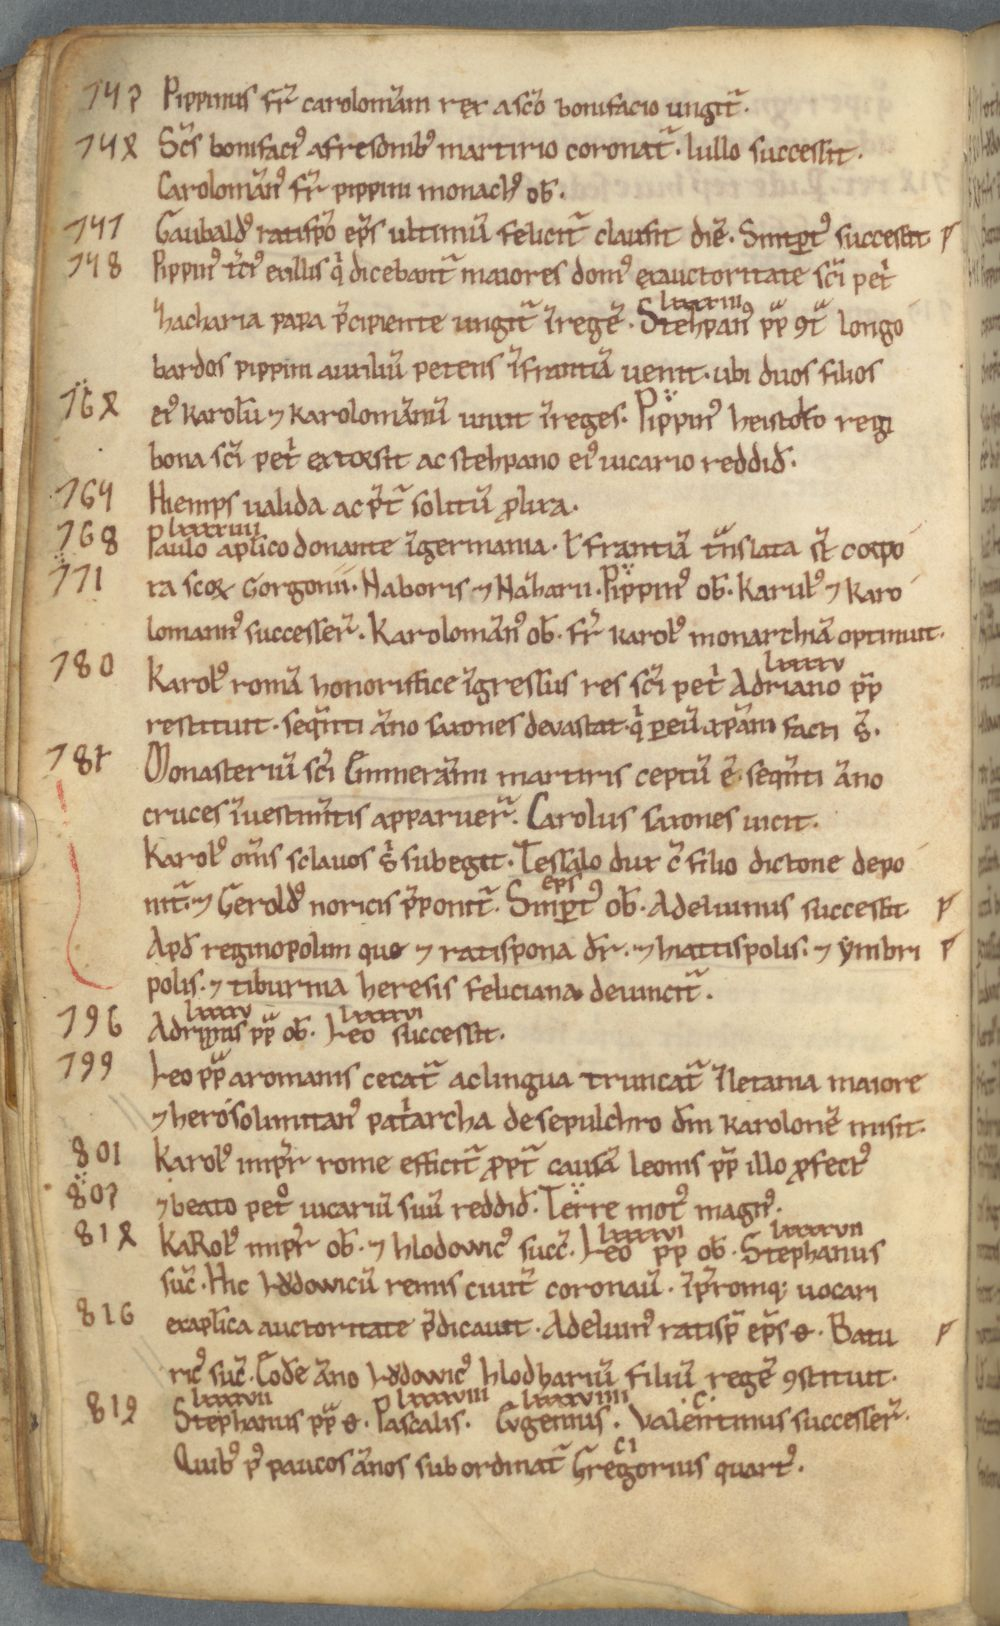 747 Pippinus fr̄ carolomānı rex a sc̄o bonifacio ungit̄.
74X Sc̄s bonifaci9 a fresonib9 martirio coronat̄. lullo successit.
Caroloman̄9 fr̄ pippini monach9 ob̄.
747 Gaubald9 ratisp̄o ep̄s ultimū feliciт̄ clausit diē. Sinꝑt9 successit
748 Pippin9 т̄ci9 ex illis q̇ dicebant̄ maiores dom9 ex auctoritate sc̄i pet̄
hacharia papa p̄cipiente ungit̄ ī regē. Stehpan9 pp̄ 9t̄ longo
lxxxxiii
bardos pippini auxiliū petens ī frantiā uenit. ubi duos filios
76X ei9 karolū ⁊ karolomānū unxit ī reges. Pippin9 heistolfo regi
bona sc̄i pet̄ extorsit ac stehpano ei9 uicario reddid̄.
764 Hiemps ualida ac p̄t̄ solitū ꝓlixa.
768 Paulo ap̄lico donante ī germania. l̄ frantiā t̄nslata sт̄ corpo
lxxxxiiii
771 ra scoꝝ Gorgonii. Naboris ⁊ Nazarii. Pippin9 ob̄. Karul9 ⁊ karo
lomann9 successer̄. Karoloman̄9 ob̄. fr̄ karol9 monarchiā optinuit.
780 Karol9 romā honorifice īgressus res sc̄i pet̄ Adriano pp̄
lxxxxv
restituit. seq̄nti āno saxones devastat. q̇ ꝑ eū xp̄ani facti s̄.
781 Monasteriū sc̄i Emmerāmi martiris ceptū ē. seq̄nti āno
cruces ī uestim̄tis apparuer̄. Carolus saxones uicit.
Karol9 om̄s sclauos s̄ subegit. Tessalo dux c̄ filio dictone depo
nit̄. ⁊ Gerold9 noricis p̄ponit̄. Sinꝑt9 ob̄. Adeluuinus successit.
ep̄s
Apd̄ reginopolim que ⁊ ratispona dr̄. ⁊ hiattispolis. ⁊ ymbri
polis. ⁊ tiburnia heresis feliciana deuincit̄.
796 Adrianus pp̄ ob̄. Leo successit.
lxxxxv lxxxxvi
799 Leo pp̄ a romanis cecat̄ ac lingua truncat̄ ī letania maiore
⁊ herosolimitan9 pat̄archa de sepulchro dn̄i karolo nē misit.
801 Karol9 imp̄r rome efficit̄ ꝓpt̄ causā leonis pp̄ illo ꝓfect9
807 ⁊ beato pet̊ uicariū suū reddid̄. Terre mot9 magn9.
81X KaRol9 imp̄r ob̄. ⁊ hlodowic9 succ̄. Leo pp ob̄. Stephanus
lxxxxvi lxxxxvii
suc̄. Hic hlodowicū remis ciuit̄ coronaū. īp̄romq; uocari
816 ex ap̄lica auctoritate p̄dicauit. Adeluuin9 ratisp̄ ep̄s ɵ. Batu
ric9 suc̄. Eodē āno hlodowic9 hlodhariū filiū regē 9stituit.
819 Stephanus pp̄ ɵ. Pascalis. Evgenius. Valentinus successer̄.
lxxxxvii lxxxxviii lxxxxviiii c.
Quib9 p9 paucos ānos sub ordinat̄ Gregorius quart9.
ci